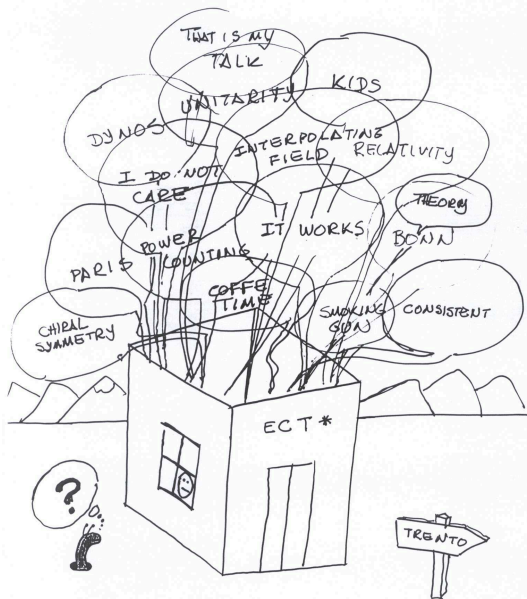 THAT IS MY
TALK
KIDS
UNITARITY
DYNOS
INTERPOLATING
FIELD
RELATIVITY
I DO NOT
CARE
THEORY
IT WORKS
BONN
POWER
COUNTING
PARIS
COFFE
TIME
SMOKING
GUN
CONSISTENT
CHIRAL
SYMMETRY
ECT *
?
TRENTO